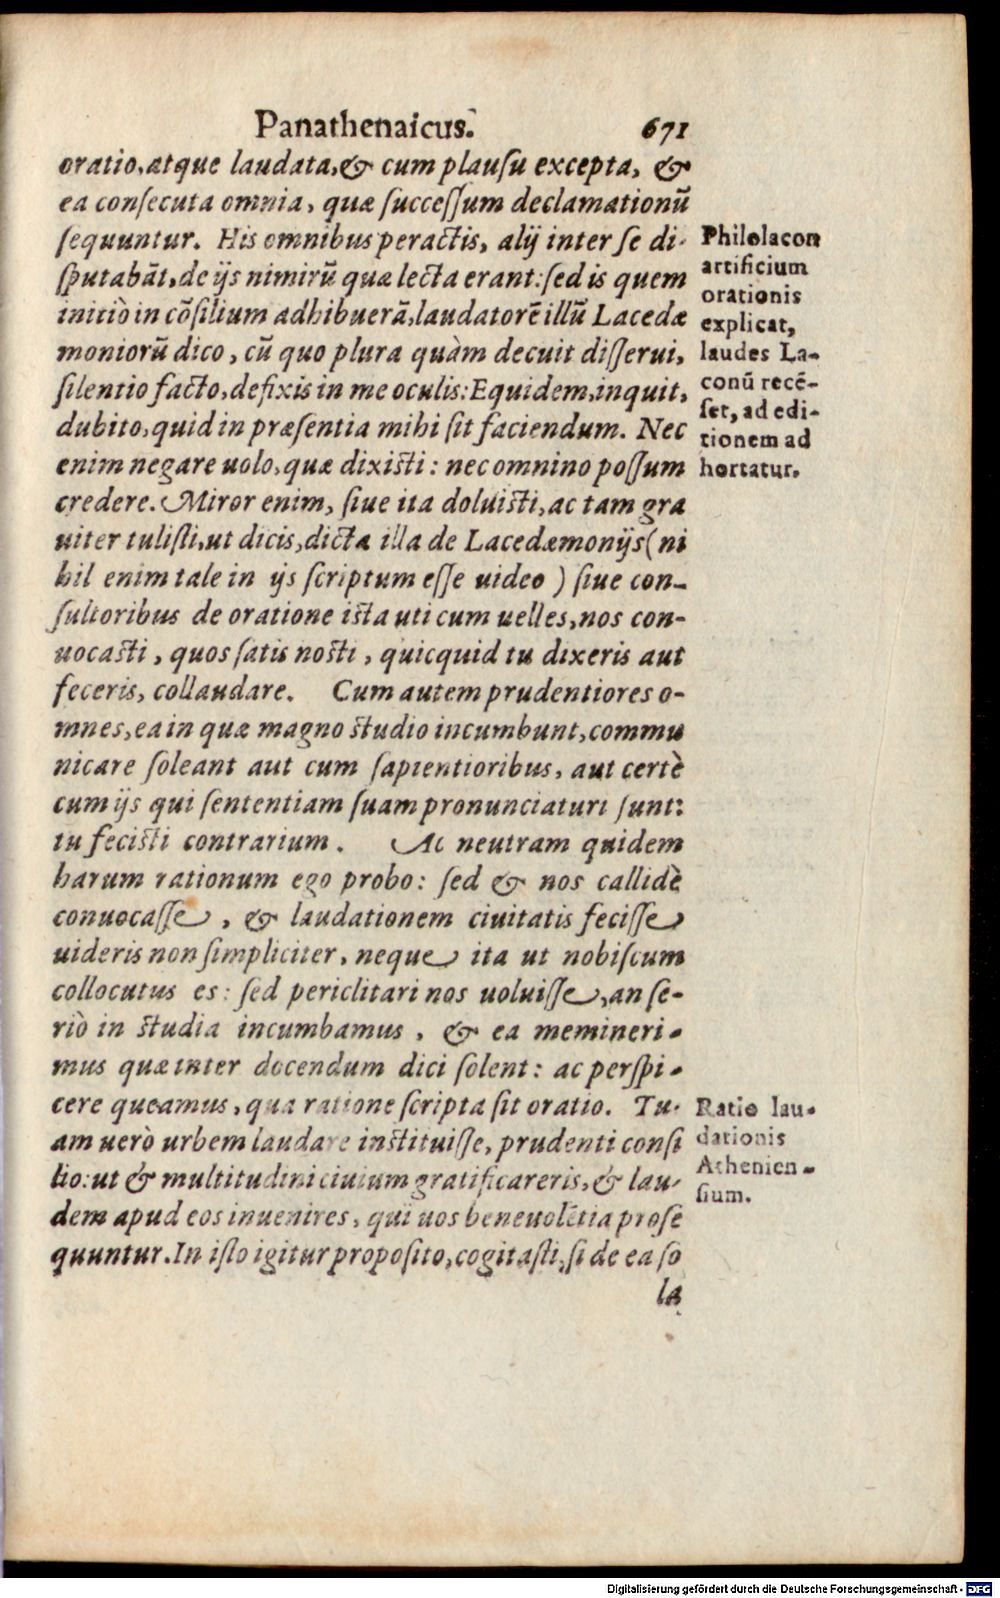 Panathenaicus. 671
oratio, atque laudata, & cum plausu excepta, &
ea consecuta omnia, quæ successum declamationũ
sequuntur. His omnibus peractis, alij inter se di-
sputabãt, de ijs nimirũ quæ lecta erant: sed is quem
initiò in cõsilium adhibuerã, laudatorẽ illũ Lacedæ
moniorũ dico, cũ quo plura quàm decuit disserui,
silentio facto, defixis in me oculis: Equidem, inquit,
dubito, quid in præsentia mihi sit faciendum. Nec
enim negare uolo, quæ dixisti: nec omnino possum
credere. Miror enim, siue ita doluisti, ac tam gra
uiter tulisti, ut dicis, dicta illa de Lacedæmonijs (ni
hil enim tale in ijs scriptum esse uideo) siue con-
sultoribus de oratione ista uti cum uelles, nos con-
uocasti, quos satis nosti, quicquid tu dixeris aut
feceris, collaudare. Cum autem prudentiores o-
mnes, ea in quæ magno studio incumbunt, commu
nicare soleant aut cum sapientioribus, aut certè
cum ijs qui sententiam suam pronunciaturi sunt:
tu fecisti contrarium. Ac neutram quidem
harum rationum ego probo: sed & nos callidè
conuocasse, & laudationem ciuitatis fecisse
uideris non simpliciter, neque ita ut nobiscum
collocutus es: sed periclitari nos uoluisse, an se-
riò in studia incumbamus, & ea memineri-
mus quæ inter docendum dici solent: ac perspi-
cere queamus, qua ratione scripta sit oratio. Tu-
am uerò urbem laudare instituisse, prudenti consi
lio: ut & multitudini ciuium gratificareris, & lau-
dem apud eos inuenires, qui uos beneuolẽtia prose
quuntur. In isto igitur proposito, cogitasti, si de ea so
la
Philolacon
artificium
orationis
explicat,
laudes La-
conũ recẽ-
set, ad edi-
tionem ad
hortatur.
Ratio lau-
dationis
Athenien-
sium.
Digitalisierung gefördert durch die Deutsche Forschungsgemeinschaft - DFG